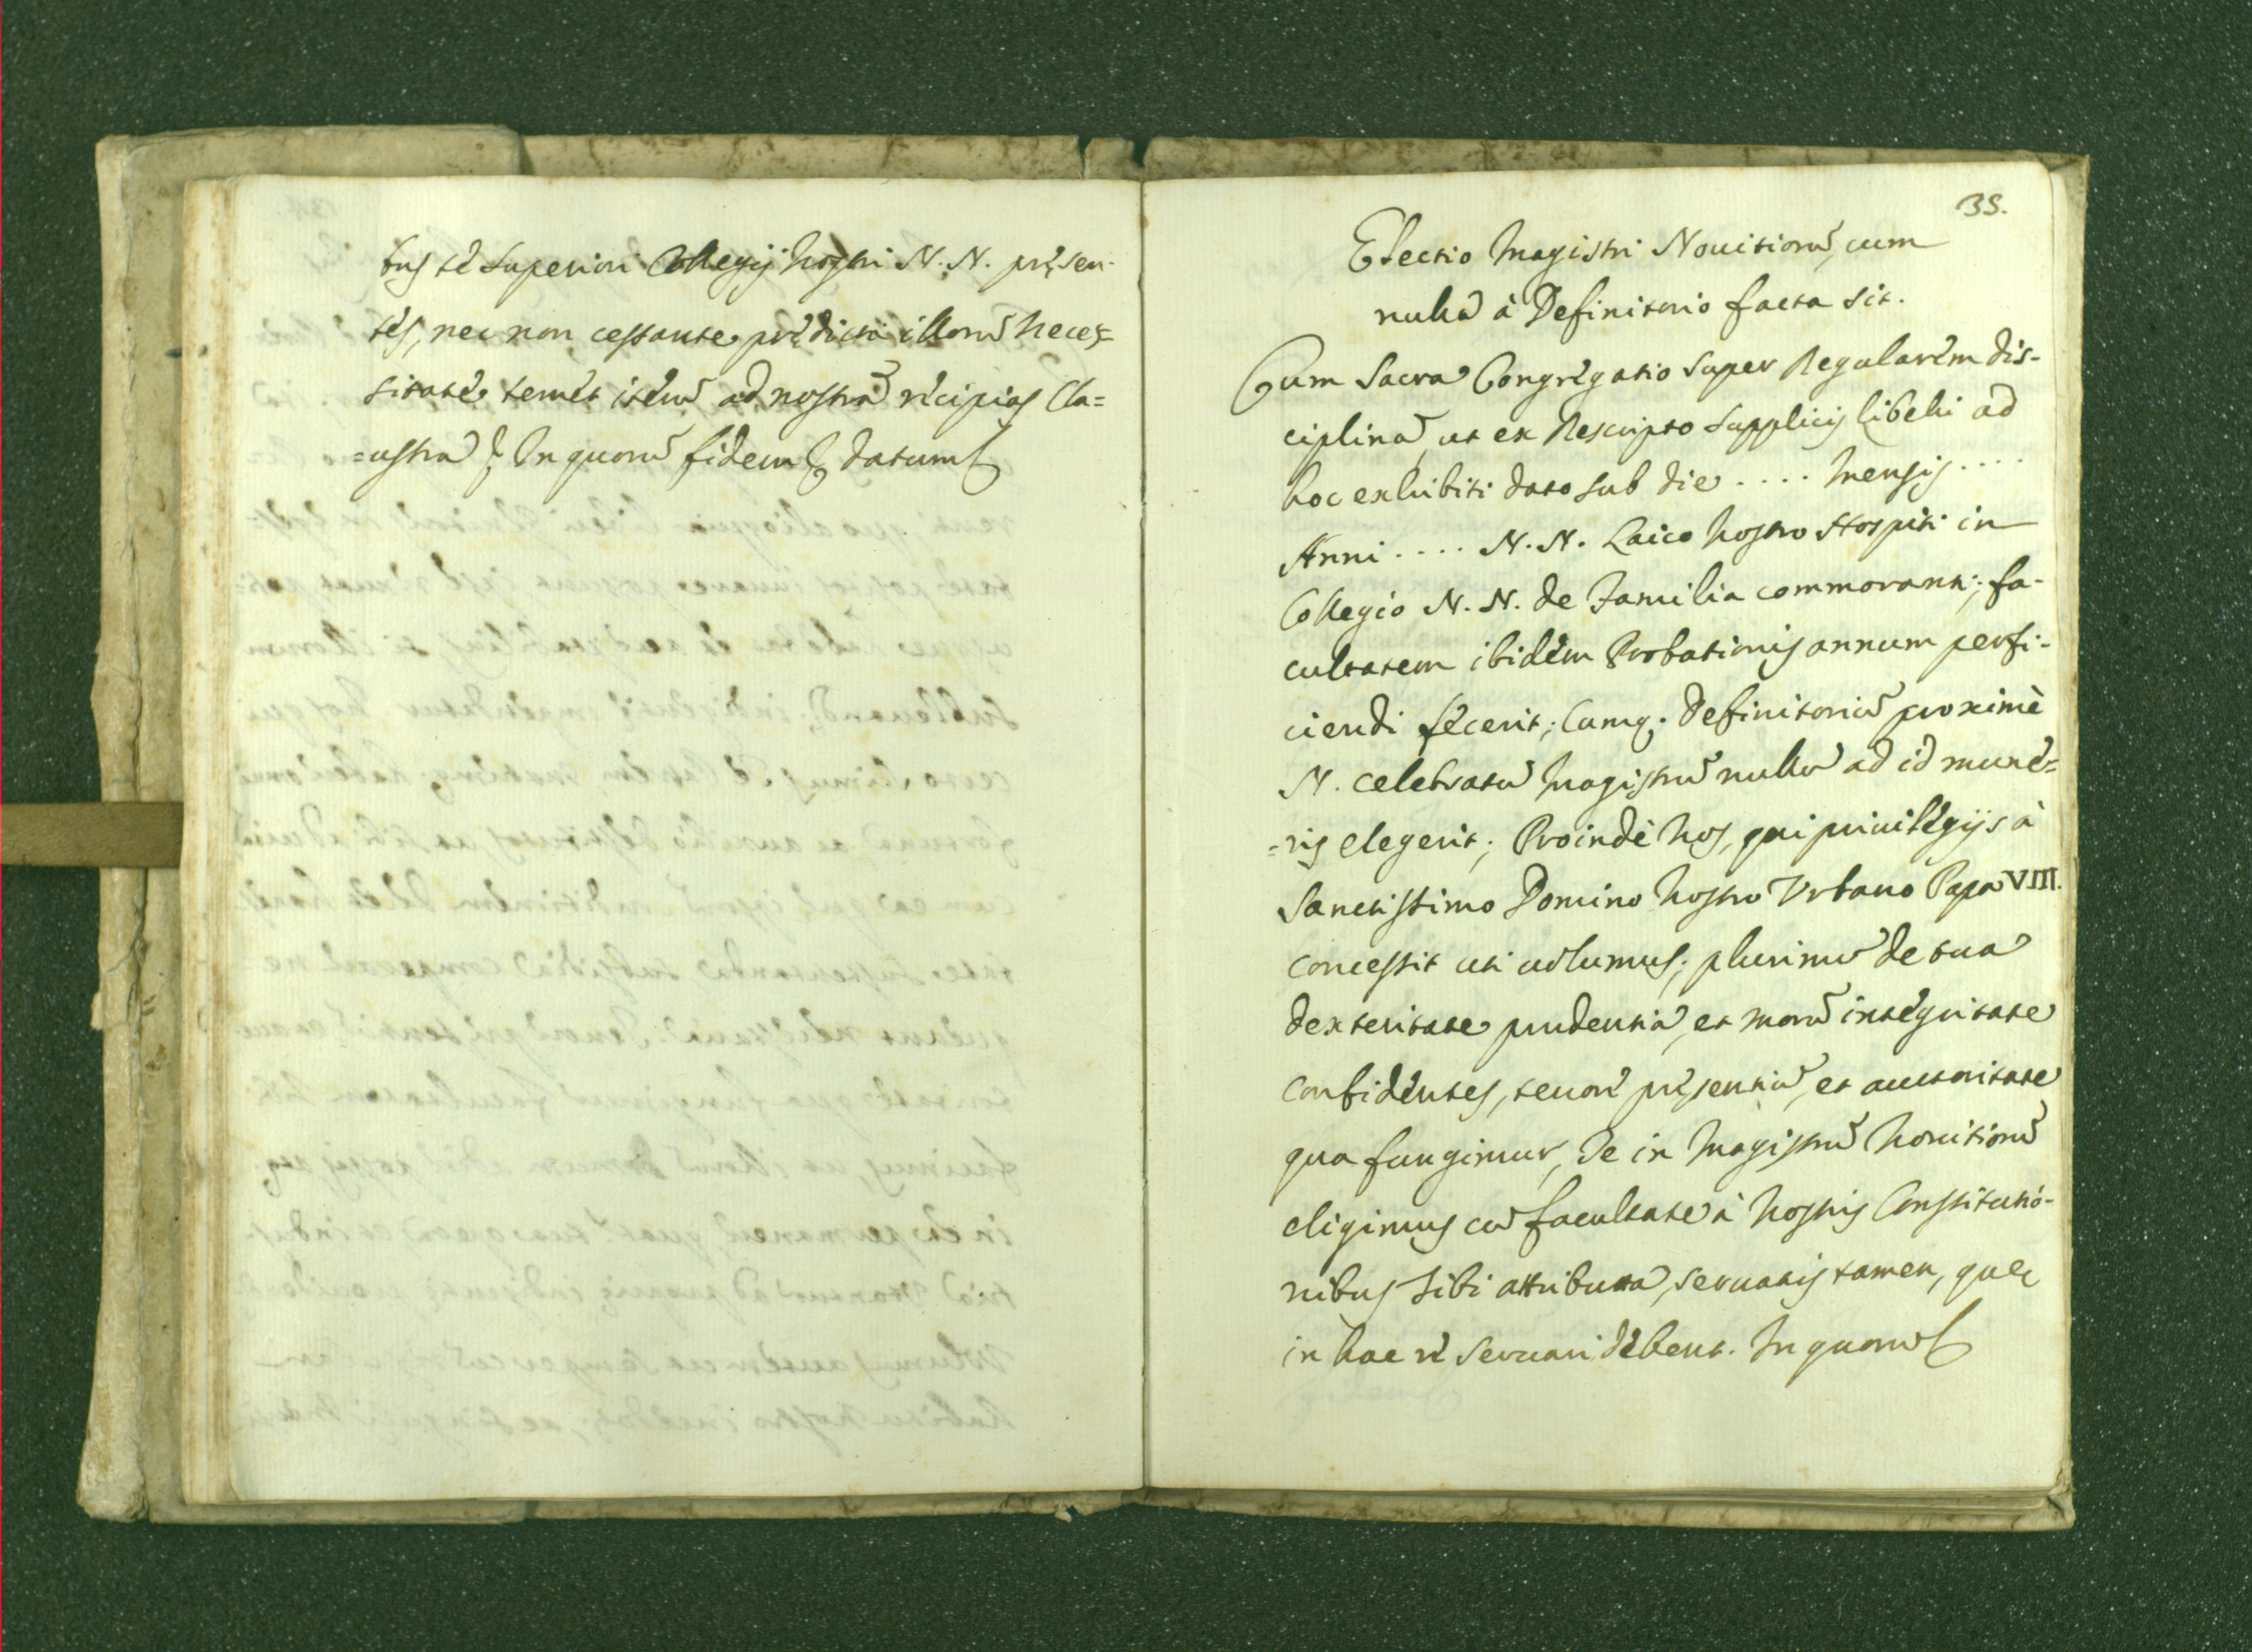 bus té Superiori Collegij Nostri N. N. pręsen-
tés, nec non cessante prędicta illorũ Neces=
sitaté temét iterũ ad nostrã récipias Cla=
=ustrã &. In quorũ fidem & datum &
35.
Electio Magistri Nouitiorũ, cum
nullã à Definitorio facta sit.
Cum Sacra Congrégatio super Regularém dis-
ciplinã, ut ex Rescripto Supplicis Libelli ad
hoc exhibiti dato sub die .... Mensis ....
Anni .... N. N. Laico Nostro Hospiti in
Collegio N. N. de Familia commoranti; fa-
cultatem ibidém Probationis annum perfi-
ciendi fécerit; Cumq; Definitoriũ proximè
N. celebratũ Magistrũ nullũ ad id muné=
=ris elegerit; Proindè Nos, qui priuilégijs à
Sanctissimo Domino Nostro Vrbano Papa VIII.
concessis uti uolumus; plurimũ de tua
dexteritate prudentia, et morũ intégritate
confidéntes, tenoré pręsentiũ, et auctoritate
qua fungimur, Te in Magistrũ Nouitiorũ
eligimus cũ facultate à Nostris Constitutió-
nibus Tibi attributa, seruatis tamen, quę
in hac ré seruari débent. In quorũ &